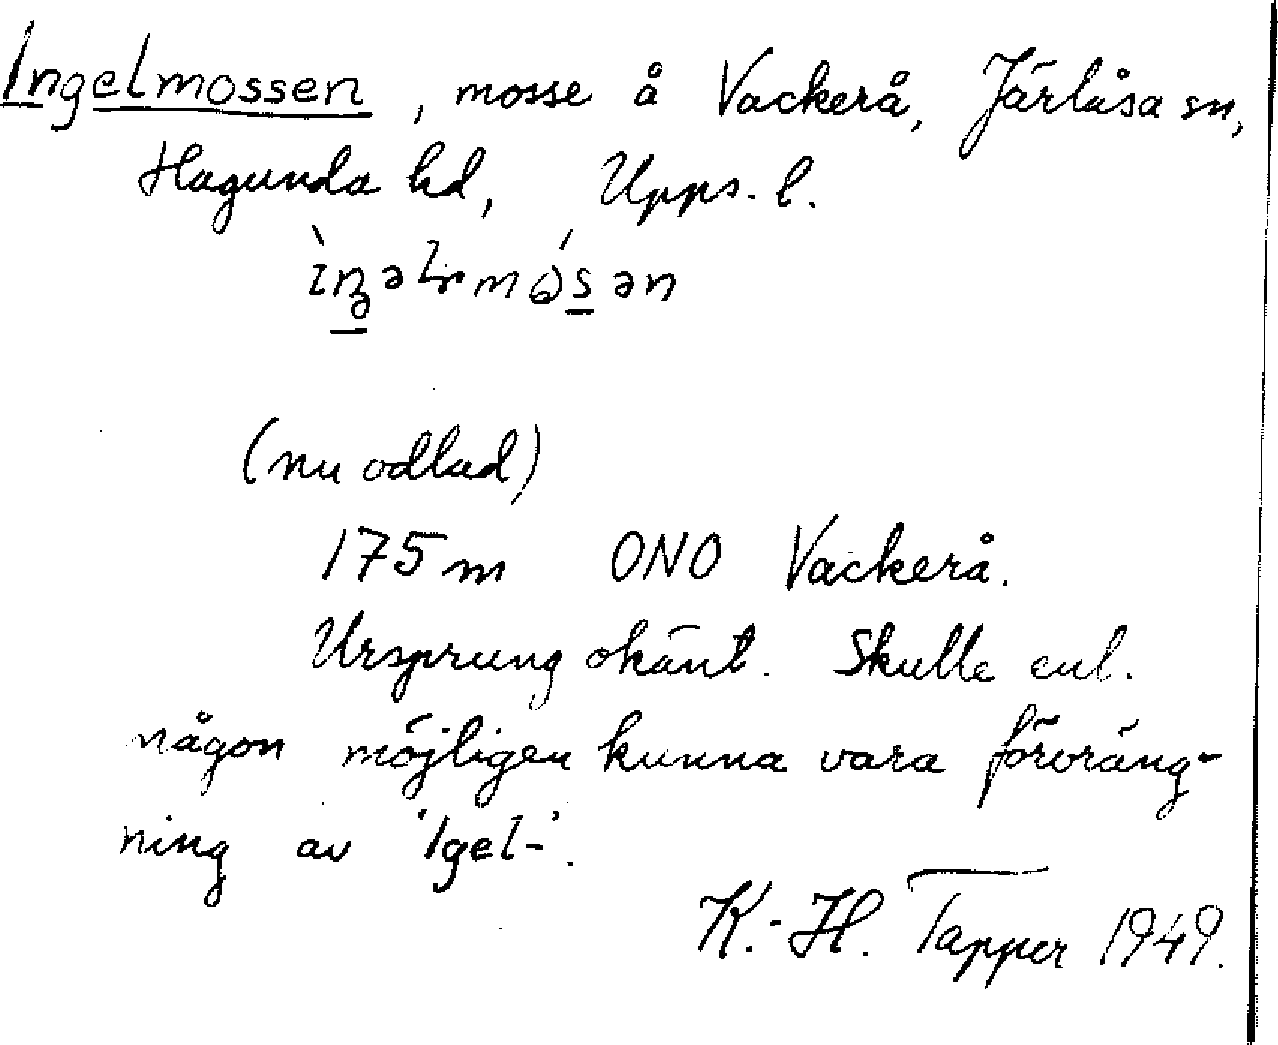 Ingelmossen, mosse å Vackerå, Järlåsa sn,
Hagunda hd, Upps. l.
(nu odlad)
175 m ONO Vackerå.
Ursprung okänt. Skulle enl.
någon möjligen kunna vara förväng-
ning av 'Igel-'.
K.-H. Tapper 1949.